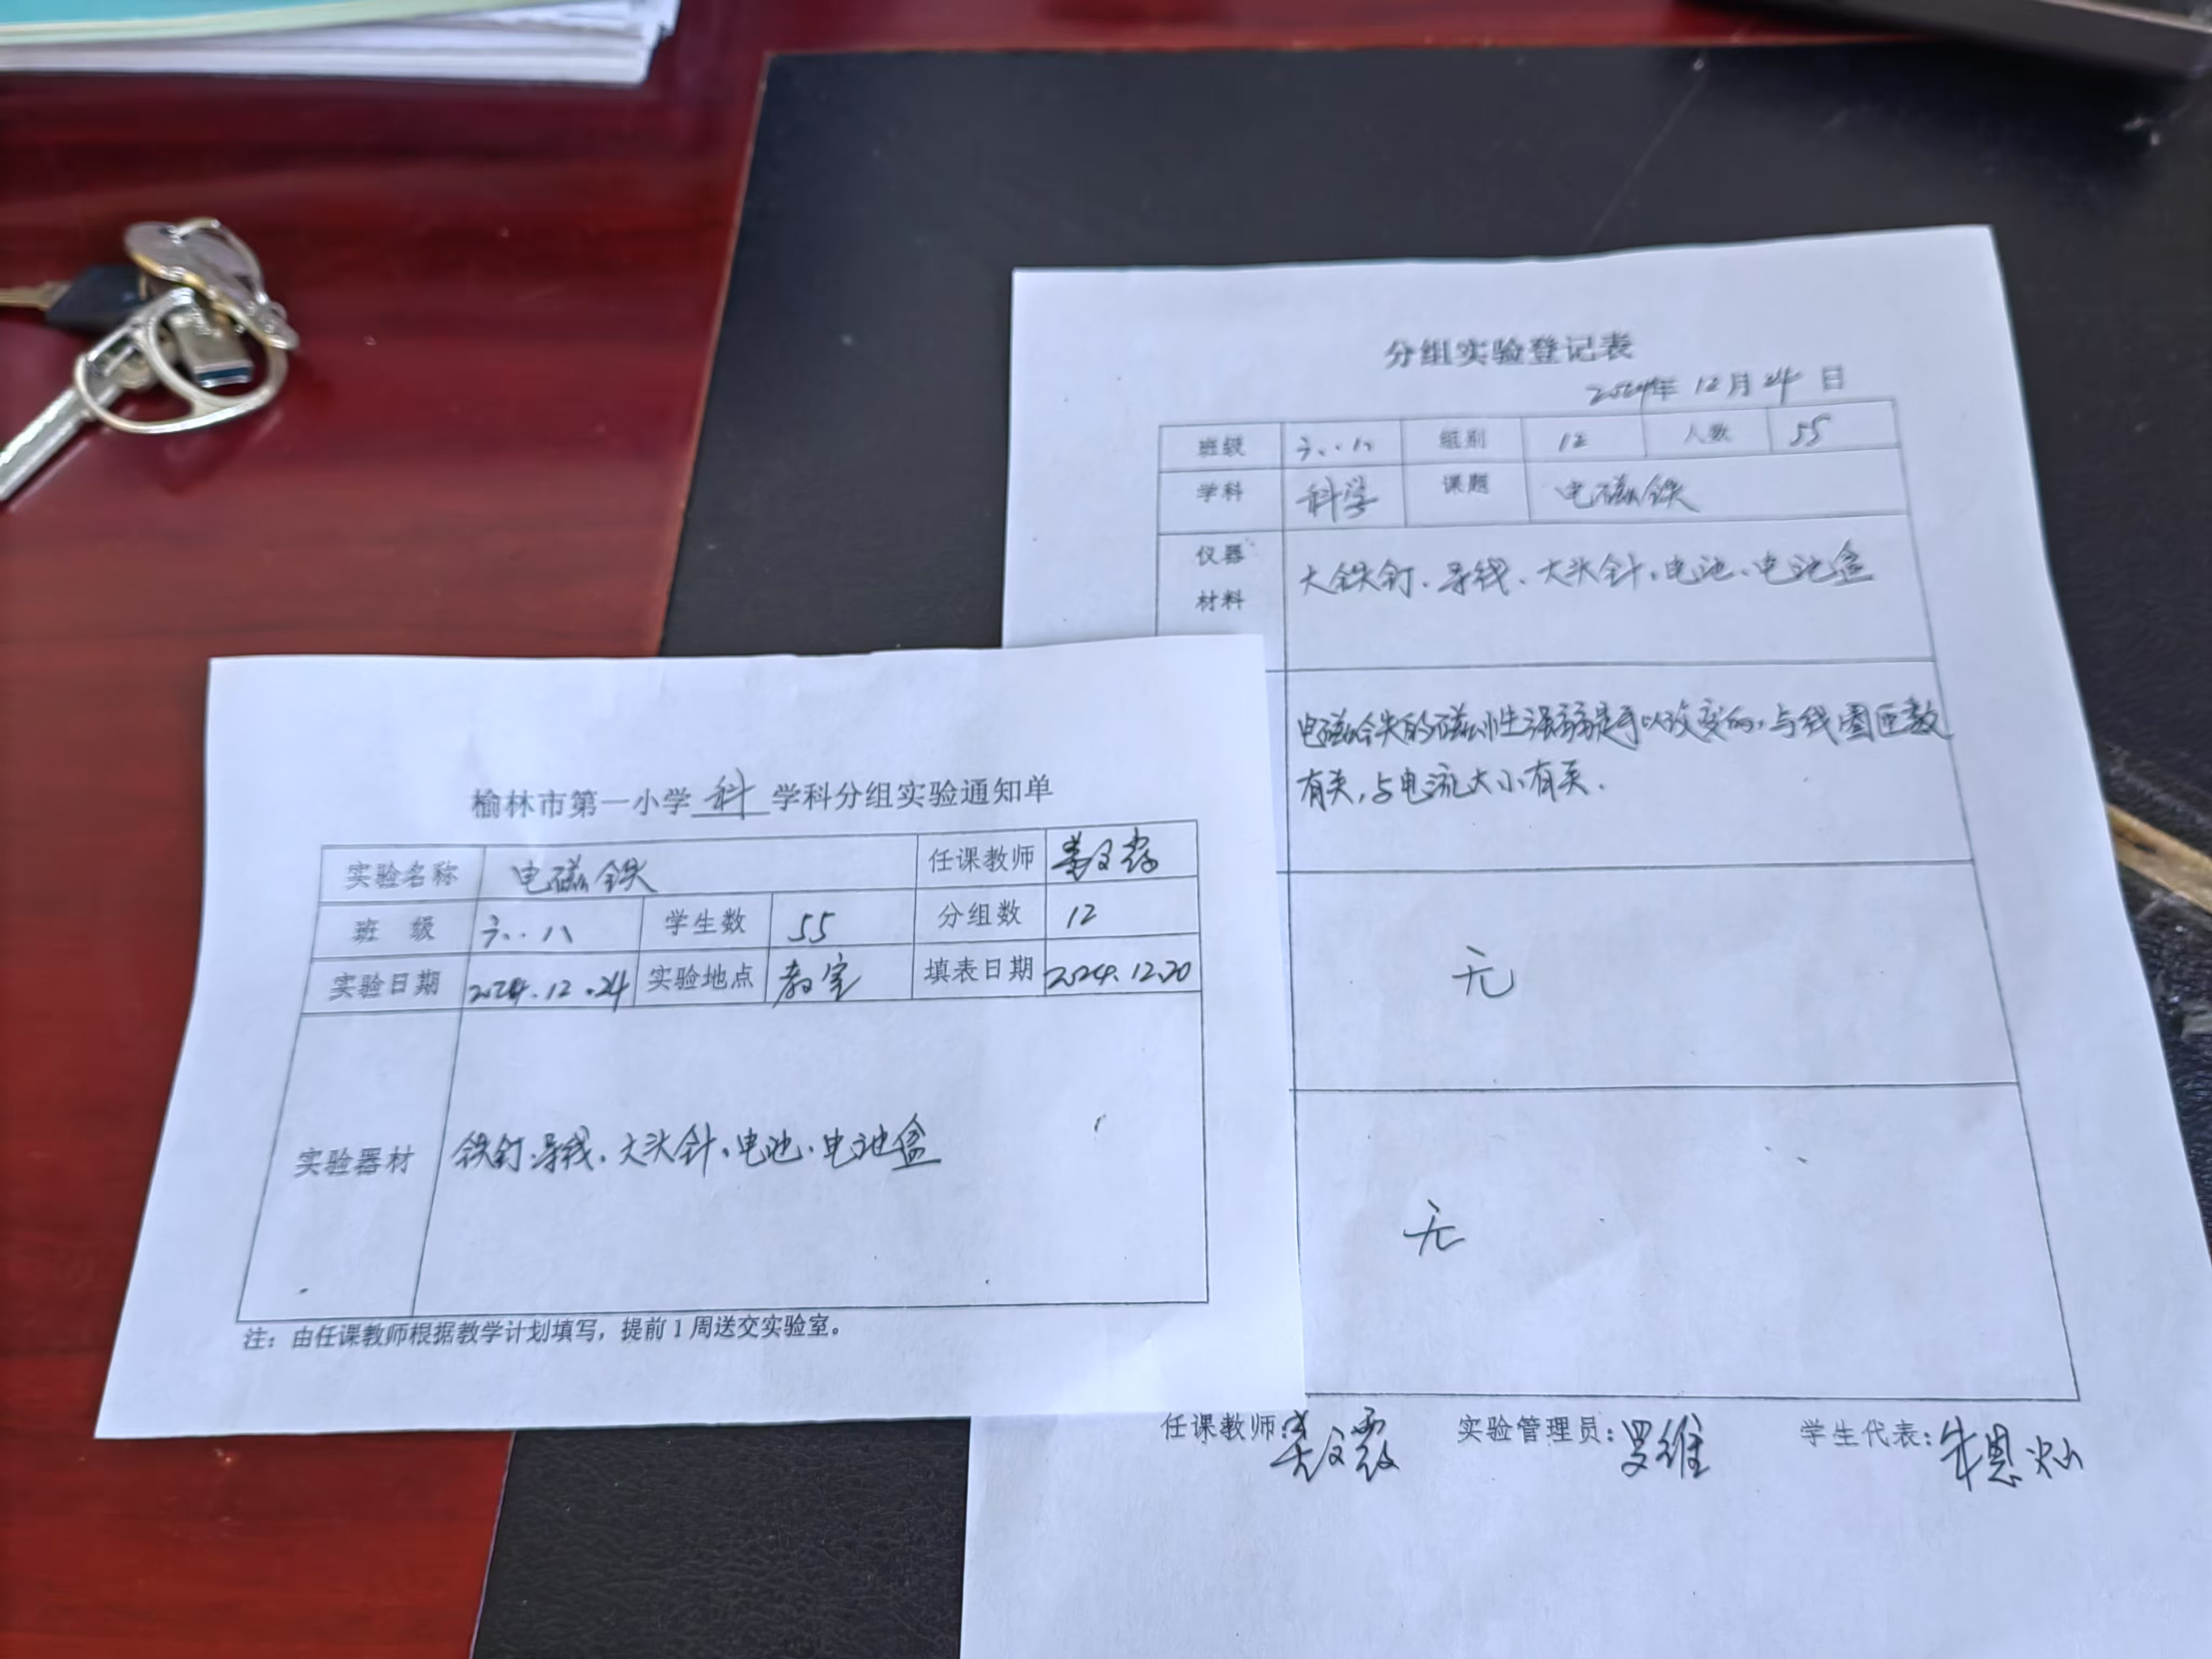 榆林市第一小学科学科分组实验通知单
实验名称 电磁铁 任课教师
班 级 六.八 学生数 55 分组数 12
实验日期 2024.12.24 实验地点 教室 填表日期 2024.12.20
实验器材 铁钉.导线、大头针、电池、电池盒
注：由任课教师根据教学计划填写，提前1周送交实验室。
分组实验登记表
2024年 12月 24日
班级 六.八 组别 12 人数 55
学科 科学 课题 电磁铁
仪器
材料
大铁钉、导线、大头针、电池、电池盒
电磁铁的磁性强弱是可以改变的，与线圈匝数
有关，与电流大小有关.
无
无
任课教师: 实验管理员:罗维 学生代表:朱恩灿